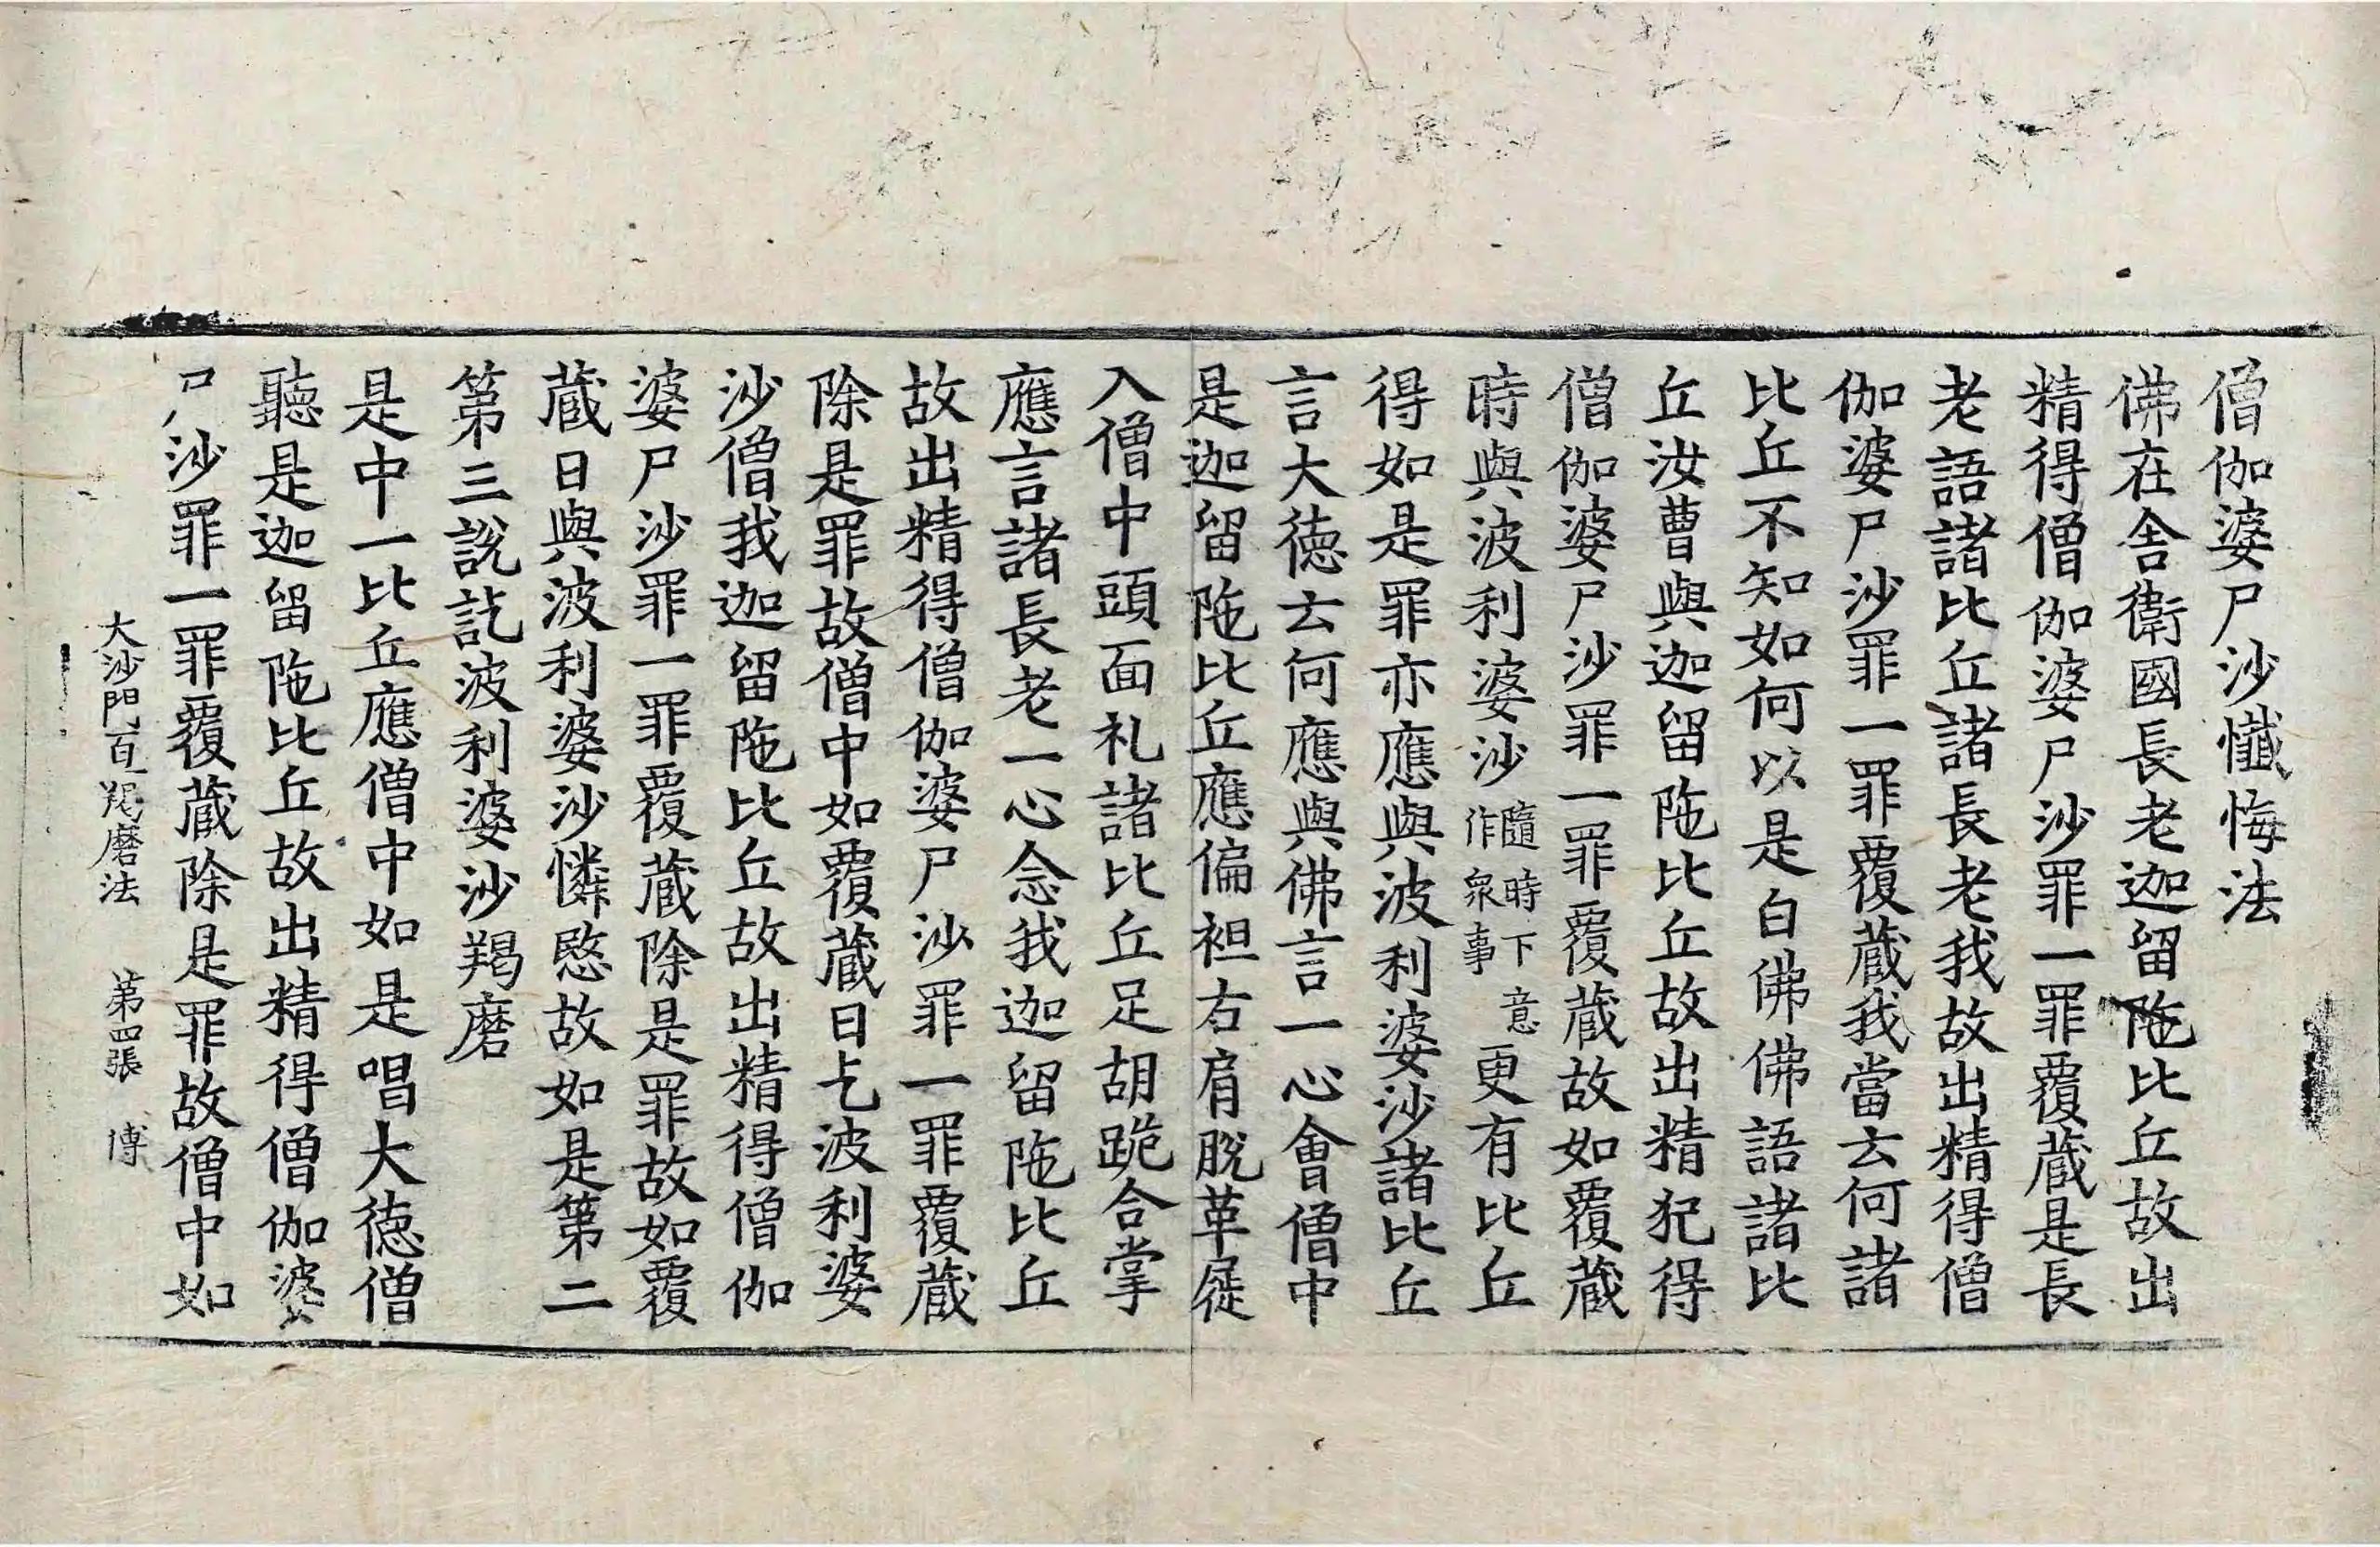 僧伽婆尸沙懺悔法
佛在舍衛國長老迦留陁比丘故出
精得僧伽婆尸沙罪一罪覆蔵是長
老語諸比丘諸長老我故出精得僧
伽婆尸沙罪一罪覆蔵我當云何諸
比丘不知如何以是白佛佛語諸比
丘汝曹與迦留陁比丘故出精犯得
僧伽婆尸沙罪一罪覆蔵故如覆蔵
時與波利婆沙隨時下意作衆事更有比丘
得如是罪亦應與波利婆沙諸比丘
言大徳云何應與佛言一心會僧中
是迦留陁比丘應偏袒右肩脫革屣
入僧中頭面礼諸比丘足胡跪合掌
應言諸長老一心念我迦留陁比丘
故出精得僧伽婆尸沙罪一罪覆蔵
除是罪故僧中如覆蔵日乞波利婆
沙僧我迦留陁比丘故出精得僧伽
婆尸沙罪一罪覆蔵除是罪故如覆
蔵日與波利婆沙憐愍故如是第二
第三說訖波利婆沙羯磨
是中一比丘應僧中如是唱大徳僧
聽是迦留陁比丘故出精得僧伽婆
尸沙罪一罪覆蔵除是罪故僧中如
大沙門百一羯磨法 第四張 博